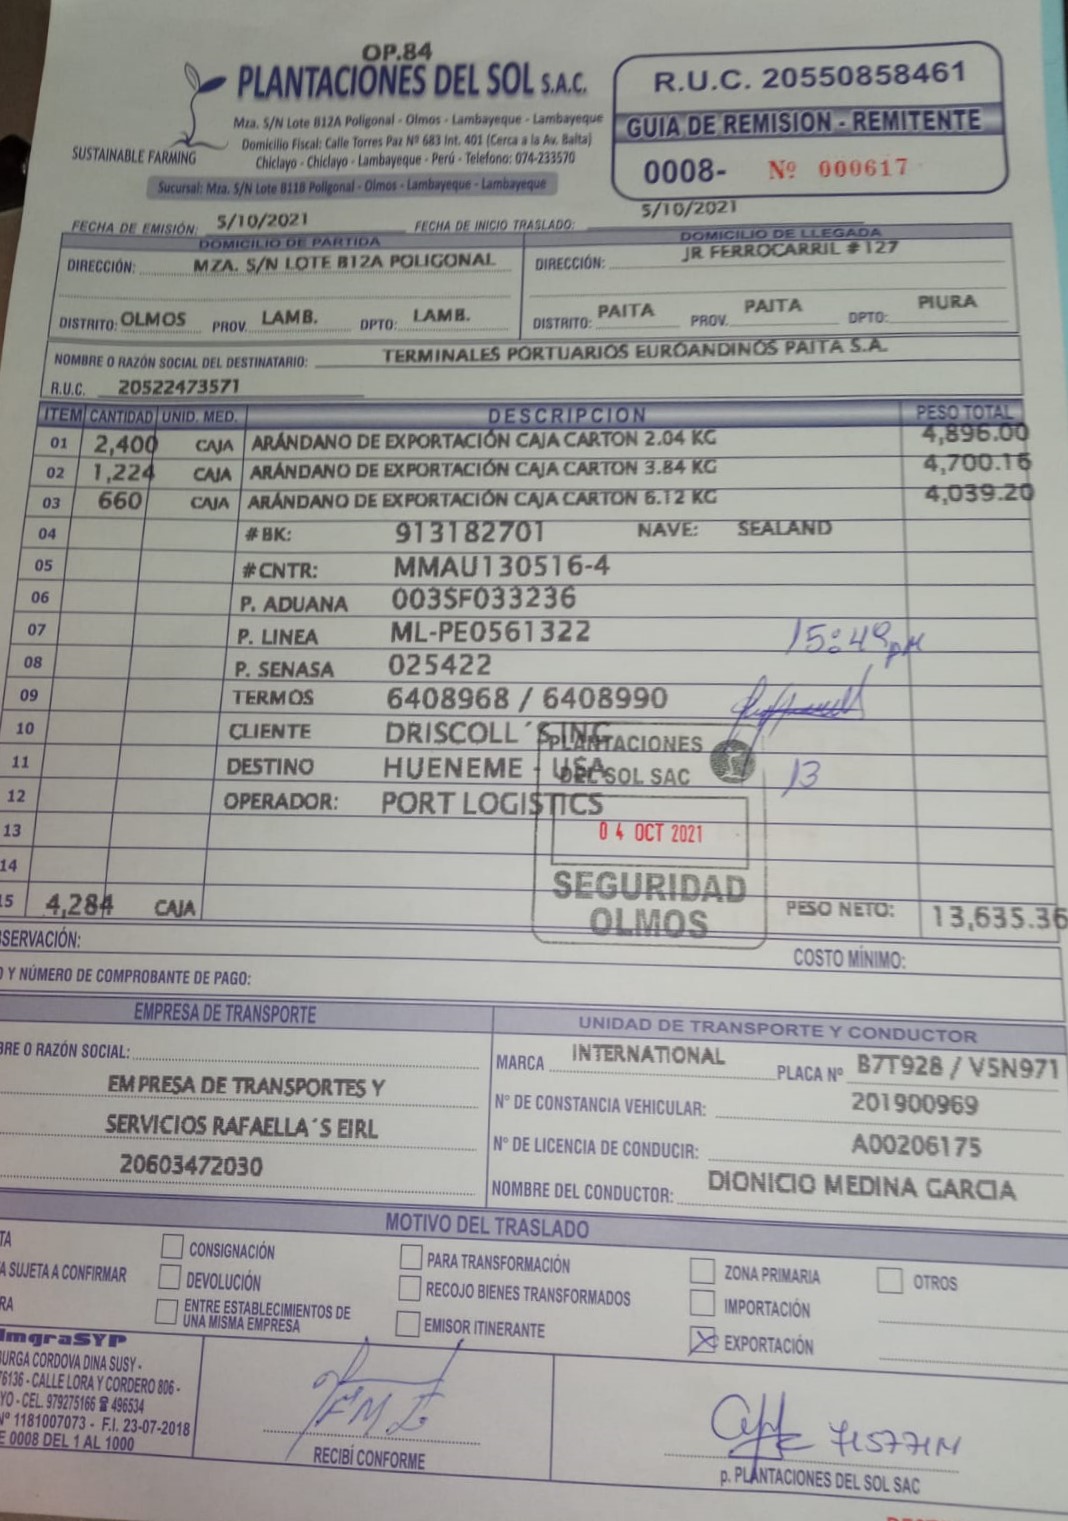 OP.84
PLANTACIONES DEL SOL S.A.C.
Mza. S/N Lote B12A Poligonal - Olmos - Lambayeque - Lambayeque
Domicilio Fiscal: Calle Torres Paz Nº 683 Int. 401 (Cerca a la Av. Balta)
Chiclayo - Chiclayo - Lambayeque - Perú - Telefono: 074-233570
SUSTAINABLE FARMING
Sucursal: Mza. S/N Lote B11B Poligonal - Olmos - Lambayeque - Lambayeque
R.U.C. 20550858461
GUIA DE REMISION - REMITENTE
0008- Nº 000617
FECHA DE EMISIÓN: 5/10/2021 FECHA DE INICIO TRASLADO: 5/10/2021
DOMICILIO DE PARTIDA
DIRECCIÓN: MZA. S/N LOTE B12A POLIGONAL
DISTRITO: OLMOS PROV. LAMB. DPTO: LAMB.
DOMICILIO DE LLEGADA
DIRECCIÓN: JR FERROCARRIL # 127
DISTRITO: PAITA PROV. PAITA DPTO: PIURA
NOMBRE O RAZÓN SOCIAL DEL DESTINATARIO: TERMINALES PORTUARIOS EUROANDINOS PAITA S.A.
R.U.C. 20522473571
ITEM CANTIDAD UNID. MED. DESCRIPCION PESO TOTAL
01 2,400 CAJA ARÁNDANO DE EXPORTACIÓN CAJA CARTON 2.04 KG 4,896.00
02 1,224 CAJA ARÁNDANO DE EXPORTACIÓN CAJA CARTON 3.84 KG 4,700.16
03 660 CAJA ARÁNDANO DE EXPORTACIÓN CAJA CARTON 6.12 KG 4,039.20
04 # BK: 913182701 NAVE: SEALAND
05 # CNTR: MMAU130516-4
06 P. ADUANA 003SF033236
07 P. LINEA ML-PE0561322 15:49 pm
08 P. SENASA 025422
09 TERMOS 6408968 / 6408990
10 CLIENTE DRISCOLL´S ING
11 DESTINO HUENEME - USA 13
12 OPERADOR: PORT LOGISTICS
13
14
15 4,284 CAJA PESO NETO: 13,635.36
PLANTACIONES
DEL SOL SAC
04 OCT 2021
SEGURIDAD
OLMOS
SERVACIÓN: COSTO MÍNIMO:
O Y NÚMERO DE COMPROBANTE DE PAGO:
EMPRESA DE TRANSPORTE
BRE O RAZÓN SOCIAL:
EMPRESA DE TRANSPORTES Y
SERVICIOS RAFAELLA´S EIRL
20603472030
UNIDAD DE TRANSPORTE Y CONDUCTOR
MARCA INTERNATIONAL PLACA Nº B7T928 / V5N971
Nº DE CONSTANCIA VEHICULAR: 201900969
Nº DE LICENCIA DE CONDUCIR: A00206175
NOMBRE DEL CONDUCTOR: DIONICIO MEDINA GARCIA
MOTIVO DEL TRASLADO
TA CONSIGNACIÓN PARA TRANSFORMACIÓN ZONA PRIMARIA OTROS
A SUJETA A CONFIRMAR DEVOLUCIÓN RECOJO BIENES TRANSFORMADOS IMPORTACIÓN
RA ENTRE ESTABLECIMIENTOS DE UNA MISMA EMPRESA EMISOR ITINERANTE EXPORTACIÓN
ImgraSYP
BURGA CORDOVA DINA SUSY -
76136 - CALLE LORA Y CORDERO 806 -
YO - CEL. 979275166 ☎ 496534
Nº 1181007073 - F.I. 23-07-2018
E 0008 DEL 1 AL 1000
RECIBÍ CONFORME
p. PLANTACIONES DEL SOL SAC